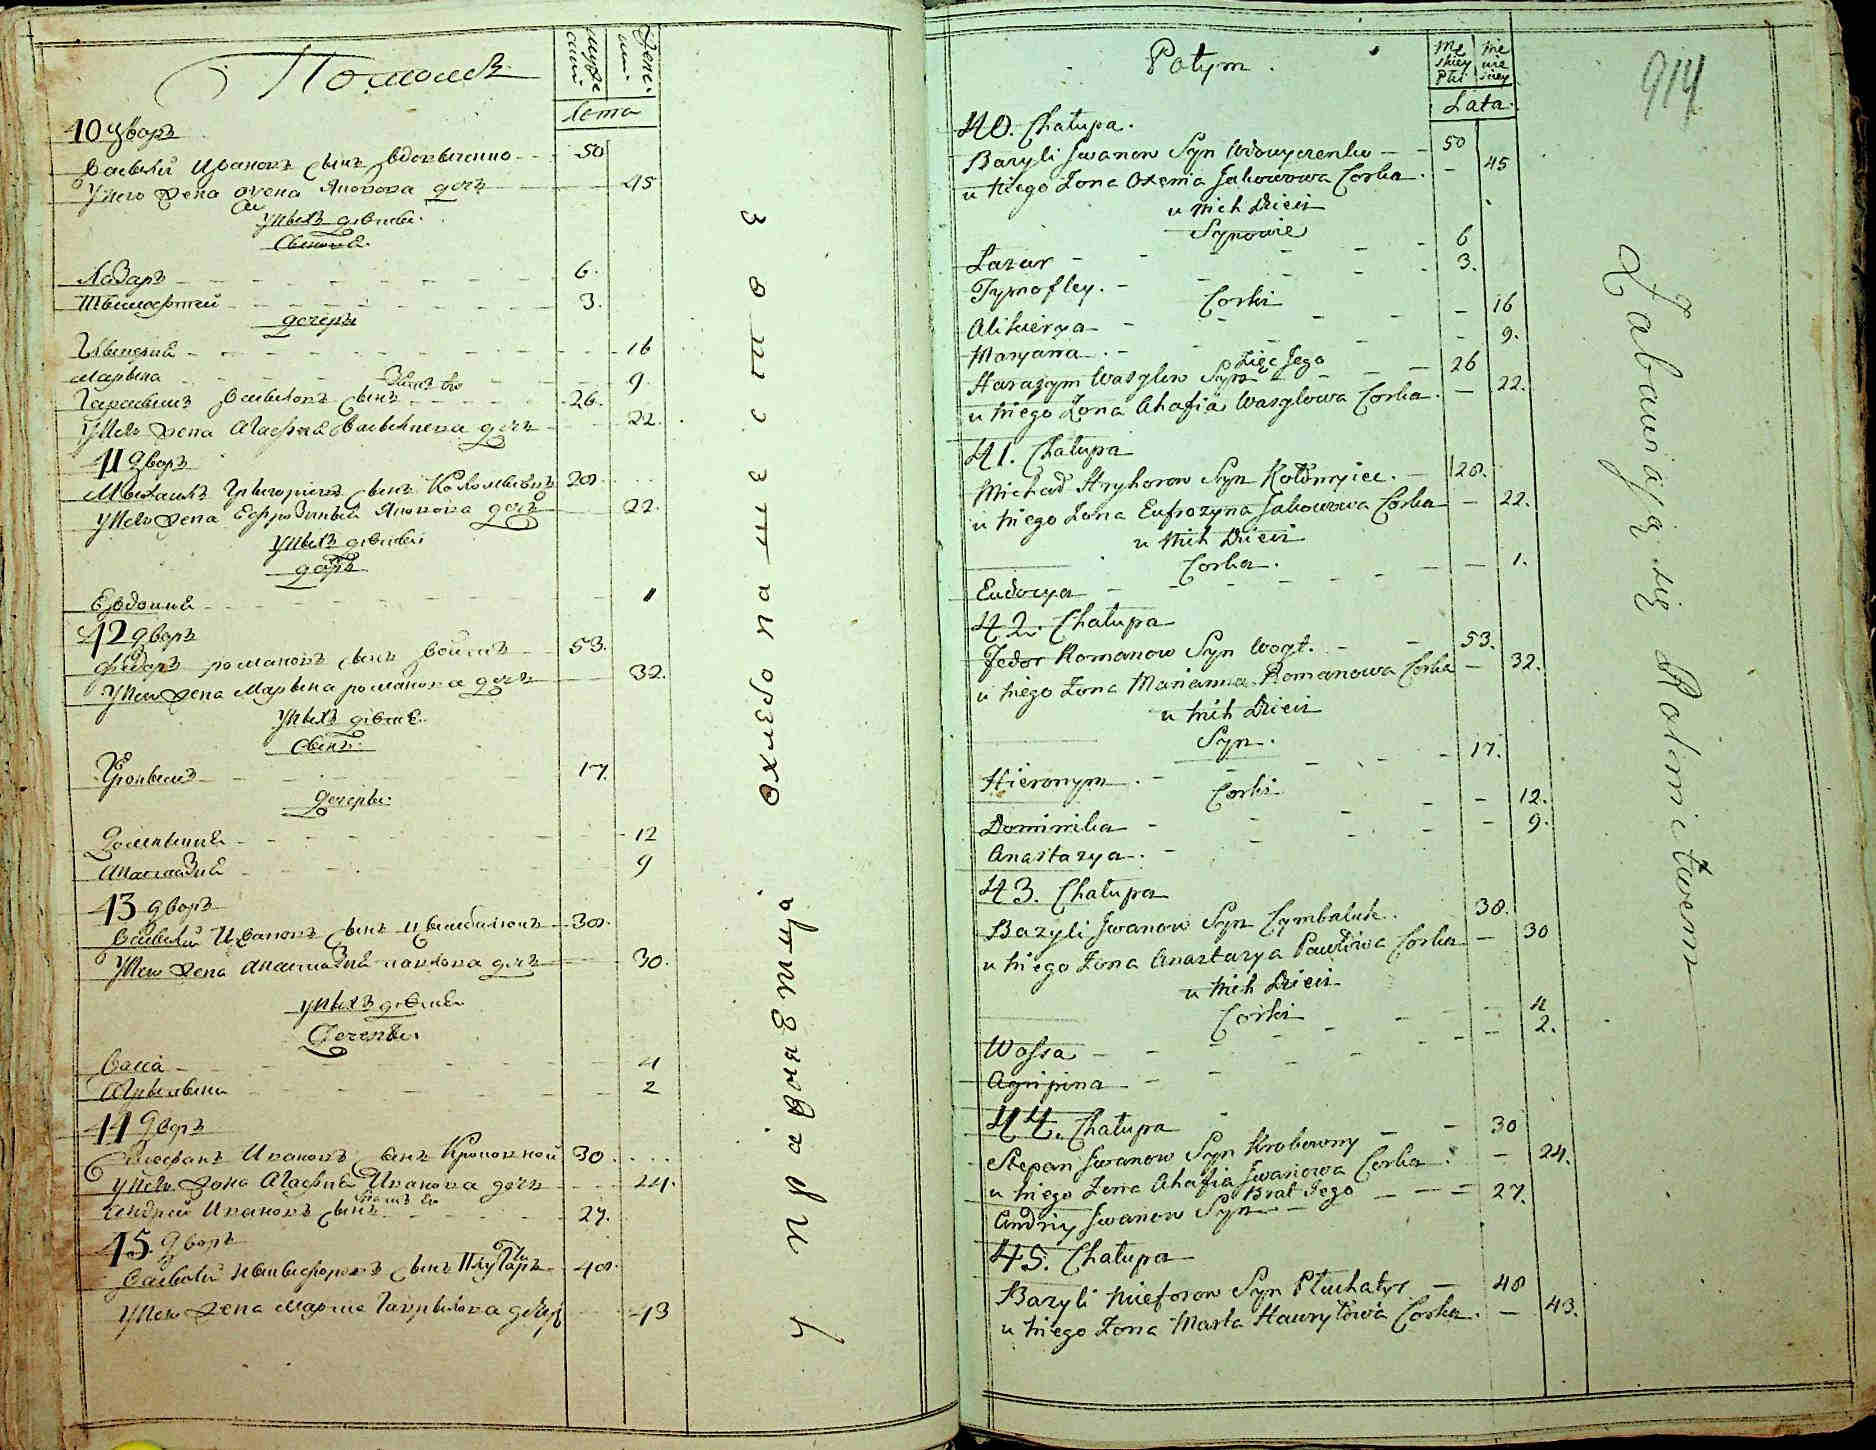 Потомъ
мужескаго
женскаго
Лета
40 дворъ
Василій Ивановъ сынъ Вдовиченко 50
У него жена Оксена Яковова дочь 45
У нихъ дети
Сыновя
Лазаръ 6.
Тимофтей 3.
дочери
16
Марина 9.
Зять его
Гарасимъ Василовъ сынъ 26.
У него жена Агафія Василиева дочь 22.
41 дворъ
Михаилъ Григориевъ сынъ Коломиецъ 28.
У него жена Ефрозиния Яковова дочь 22.
У нихъ детей
дочь
Евдокия 1
42 дворъ
Федоръ Романовъ сынъ Войтъ 53.
У него жена Марина Романова дочь 32.
У нихъ дети
Сынъ
17.
Дочери
Доминиця 12
Анастазия 9
43 дворъ
Василий Ивановъ сынъ Цимбалюкъ 38.
У него жена Анастазия Павлова дочь 30.
У нихъ дети
Дочери
Васса 4
2
44 дворъ
Стефанъ Ивановъ сынъ 30.
У него жена Агафия Иванова дочь 24.
братъ его
Андрей Ивановъ сынъ 27.
45. дворъ
Василий Никифоровъ сынъ Плухатаръ 48.
У него жена Марта Гаврилова дочь 43
упражняются в хлебопашестве
Potym.
Męskiey Płci
Lata.
914
40. Chałupa.
Bazyli Jwanow Syn Wdowyczenko 50
u niego Zona Oxenia Jakowowa Corka. 45
u nich Dzieci
Synowie
Lazar 6
Tymofiey. 3.
Corki
16
Maryana 9.
Zięc Jego
Harazym Wasylew Syn 26
u niego Zona Ahafia Wasylowa Corka. 22.
41. Chałupa
Michał Hryhorow Syn Kołomyiec. 28.
u niego Zona Eufrozyna Jakowowa Corka 22.
u nich Dzieci
Corka. 1.
Eudocya
42. Chałupa
Fedor Romanow Syn Woyt. 53.
u niego Zona Marianna Romanowa Corka 32.
u nich Dzieci
Syn. 17.
Hieronym.
Corki
Dominika 12.
Anastazya. 9.
43. Chałupa
Bazyli Jwanow Syn Cymbaluk. 38.
u niego Zona Anastazya Pawłowa Corka 30
u nich Dzieci
Corki
Wassa 4
Agripina 2.
44. Chałupa
Stepan Jwanow Syn Krokowny 30
u niego Zona Ahafia Jwanowa Corka. 24.
Brat Jego
Andriy Jwanow Syn 27.
45. Chałupa
Bazyli Nicforow Syn Płuchatyr 48
u niego Zona Marta Hawryłowa Corka. 43.
Zabawiają się Rolnictwem